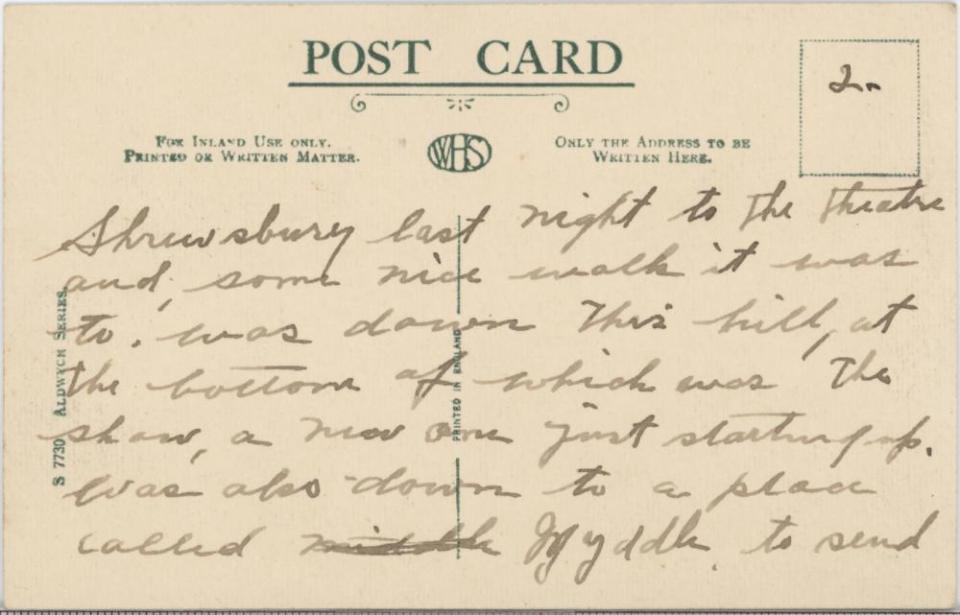 POST CARD
2-
FOR INLAND USE ONLY.
PRINTED OR WRITTEN MATTER.
WHS
ONLY THE ADDRESS TO BE
WRITTEN HERE.
Shrewsbury last night to the theatre
and, some nice walk it was
to. was down this hill, at
the bottom of which was the
show, a new one just starting up.
Was also down to a place
called middle Myddle, to send
S 7730 ALDWYCH SERIES.
PRINTED IN ENGLAND